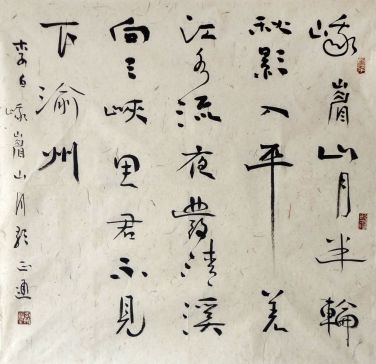 峨嵋山月半輪
秋影入平羌
江水流夜發清溪
向三峽思君不見
下渝州
李白峨嵋山月歌